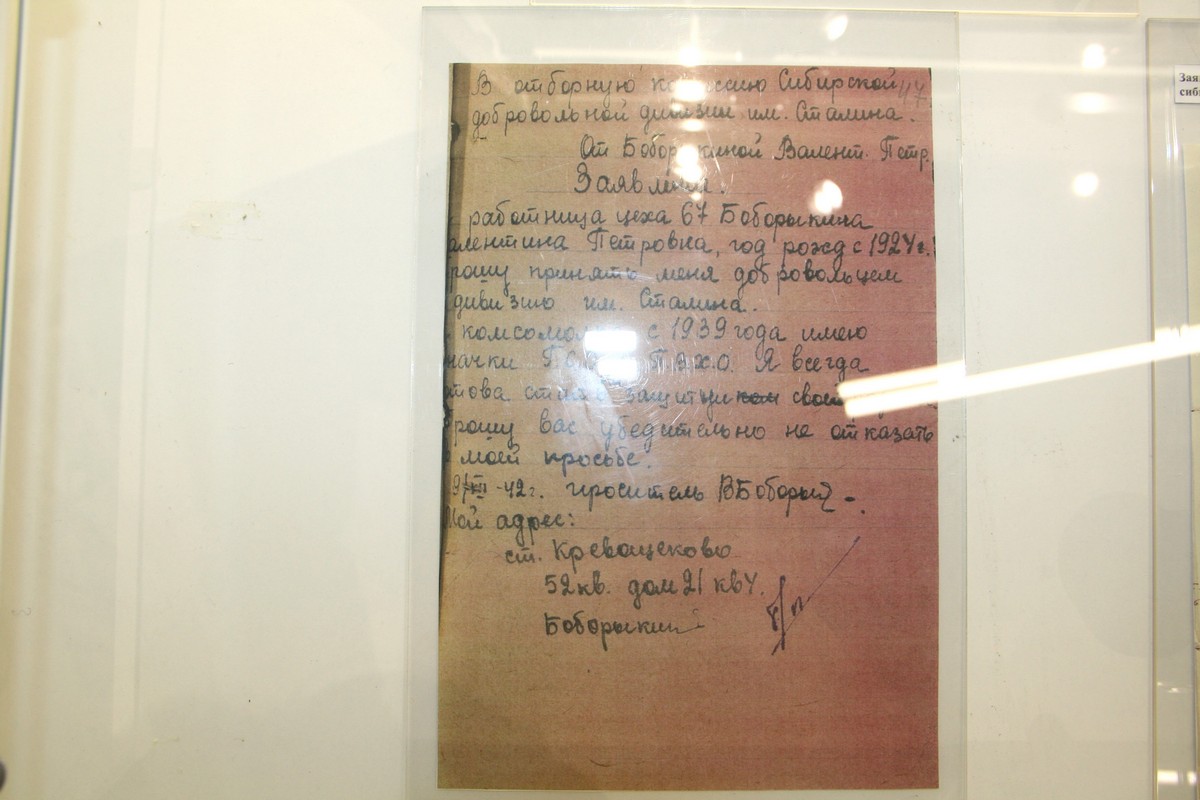 В отборную комиссию Сибирской 47
добровольной дивизии им. Сталина.
От Боборыкиной Валент. Петр.
Заявление.
работница цеха 67 Боборыкина
алентина Петровна, год рожд с 1924 г.
рошу принять меня добровольцем
дивизию им. Сталина.
комсомол с 1939 года имею
начки П.В.Х.О. Я всегда
това защитником
рошу вас убедительно не отказать
моей просьбе.
-42г. проситель ВБоборы
Мой адрес:
ст. Кревощеково
52кв. дом 21 кв 4.
Боборыкин
Зая
сиби